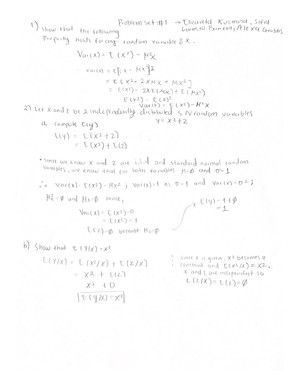 Problem Set #1
1) Show that the following
Property holds for any random variable X.
Var(x) = E(X²) - μ²x
Var(x) = E[X - μx]²
= E(X² - 2Xμx + μx²)
E(X²) - 2E(Xμx) + E(μx²)
Var(x) = E(X²) - μ²x
2) Let X and Z be 2 independently distributed random variables
Y = X² + Z
a. compute E(Y)
E(Y) = E(X² + Z)
= E(X²) + E(Z)
• since we know X and Z are i.i.d and standard normal random
variables, we know that for both variables μ=0 and σ=1
∴ Var(x) = E(X²) - μx²
μ²x=0 and μz=0 since,
Var(x) = E(X²) - 0
= E(X²) = 1
E(Z) = 0 because μz=0
E(Y) = 1 + 0
= 1
b) Show that E(Y/X) = X²
E(Y/X) = E(X²/X) + E(Z/X)
= X² + E(Z)
X² + 0
E(Y/X) = X²
since X is given, X² becomes a
constant and E(X²/X) = X²,
X and Z are independent so
E(Z/X) = E(Z) = 0